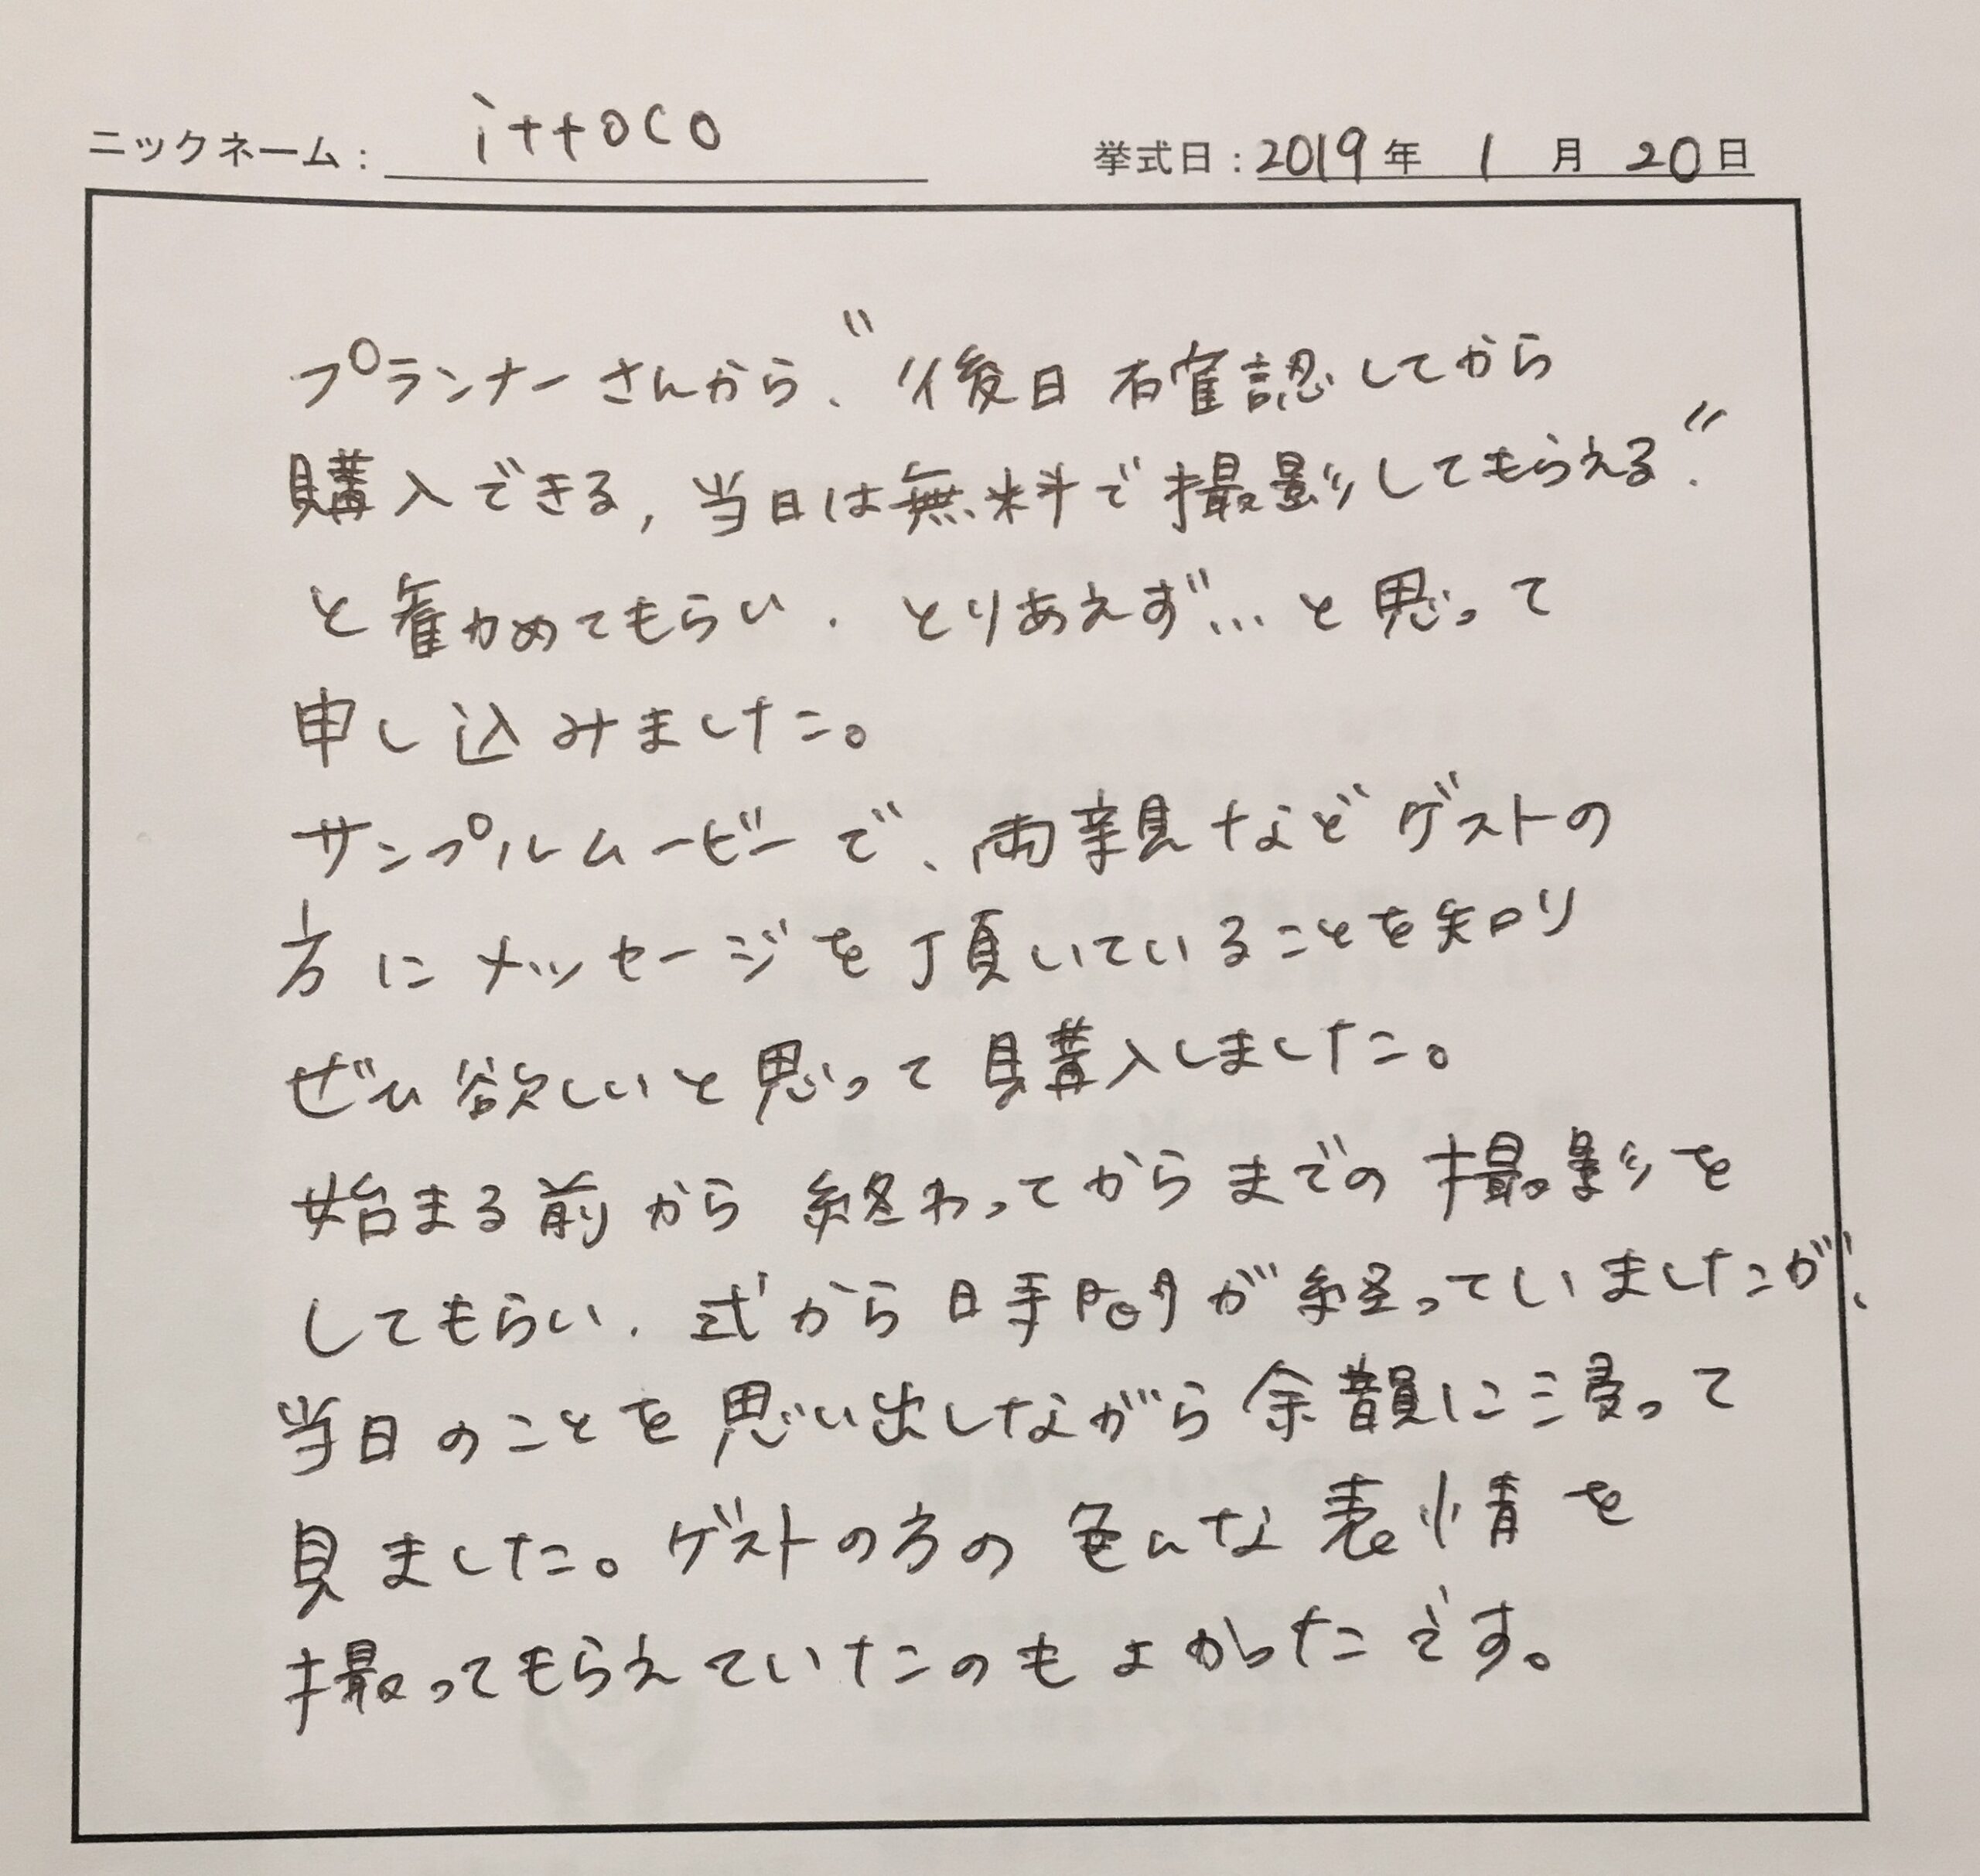 ニックネーム: ittoco 挙式日:2019年 1月 20日
プランナーさんから、"後日確認してから
購入できる,当日は無料で撮影してもらえる".
と勧めてもらい、とりあえず…と思って
申し込みました。
サンプルムービーで、両親などゲストの
方にメッセージを頂いていることを知り
ぜひ欲しいと思って購入しました。
始まる前から終わってからまでの撮影を
してもらい、式から時間が経っていましたが、
当日のことを思い出しながら余韻に浸って
見ました。ゲストの方の色んな表情を
撮ってもらえていたのもよかったです。